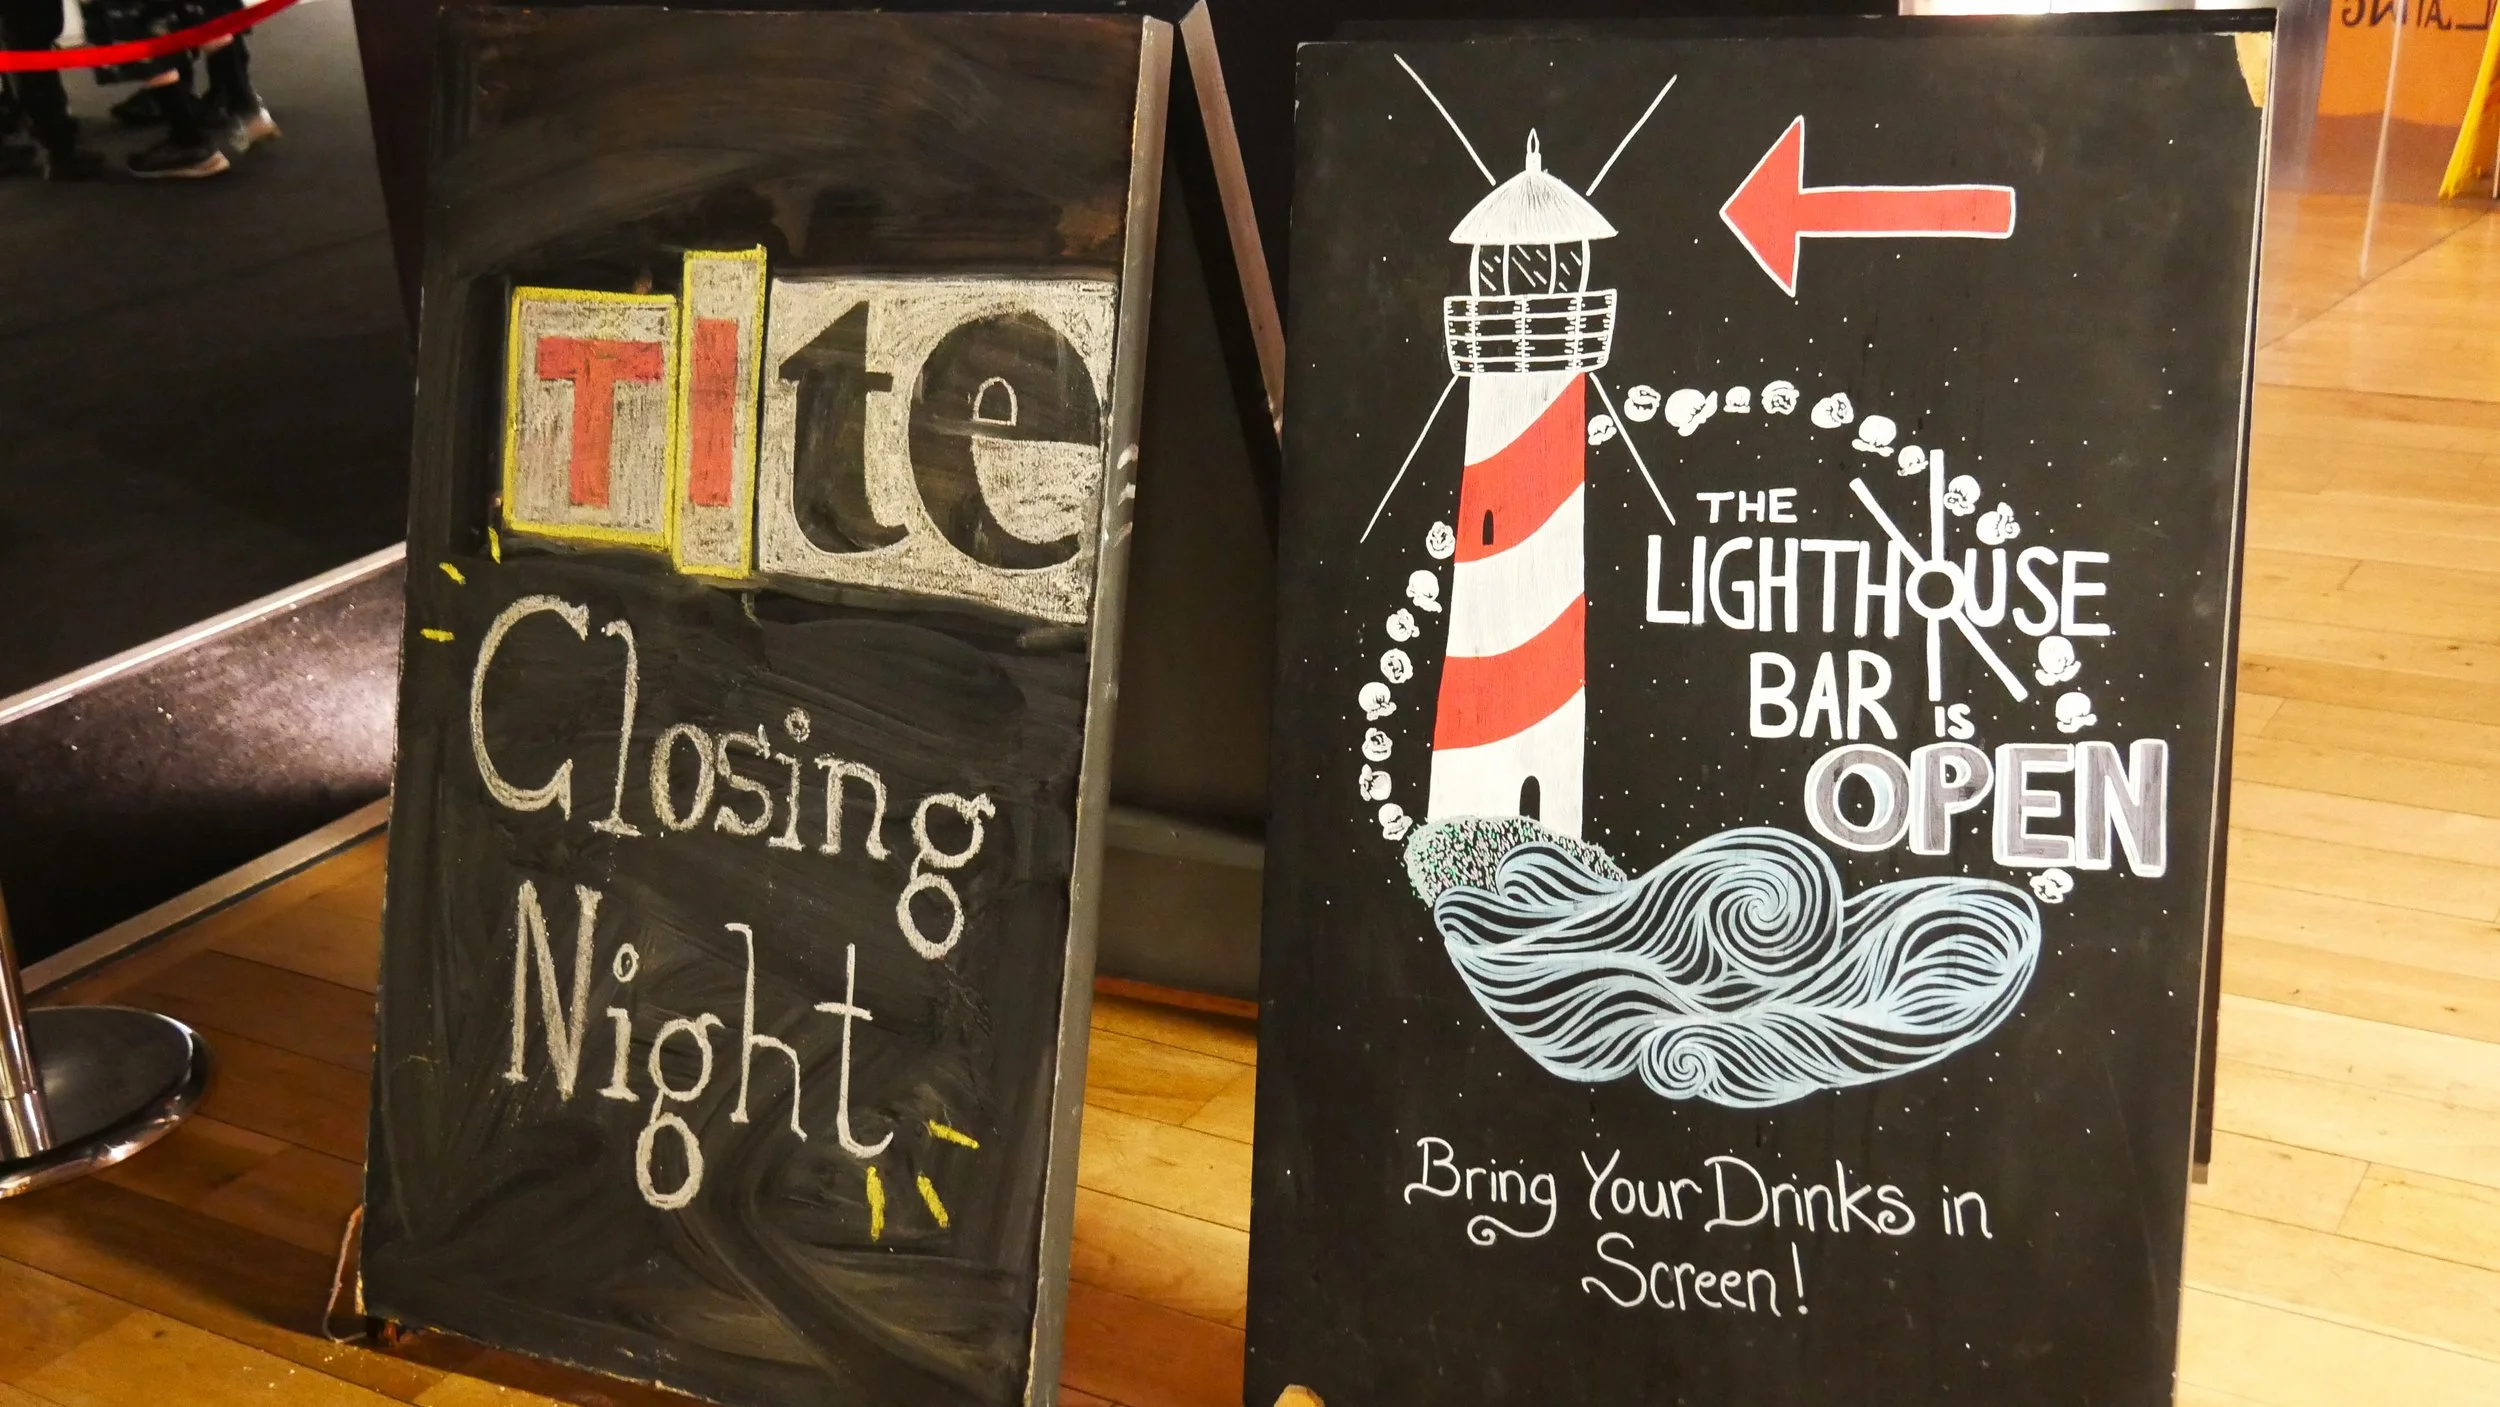 TIte
Closing
Night
THE
LIGHTHOUSE
BAR IS
OPEN
Bring Your Drinks in
Screen!